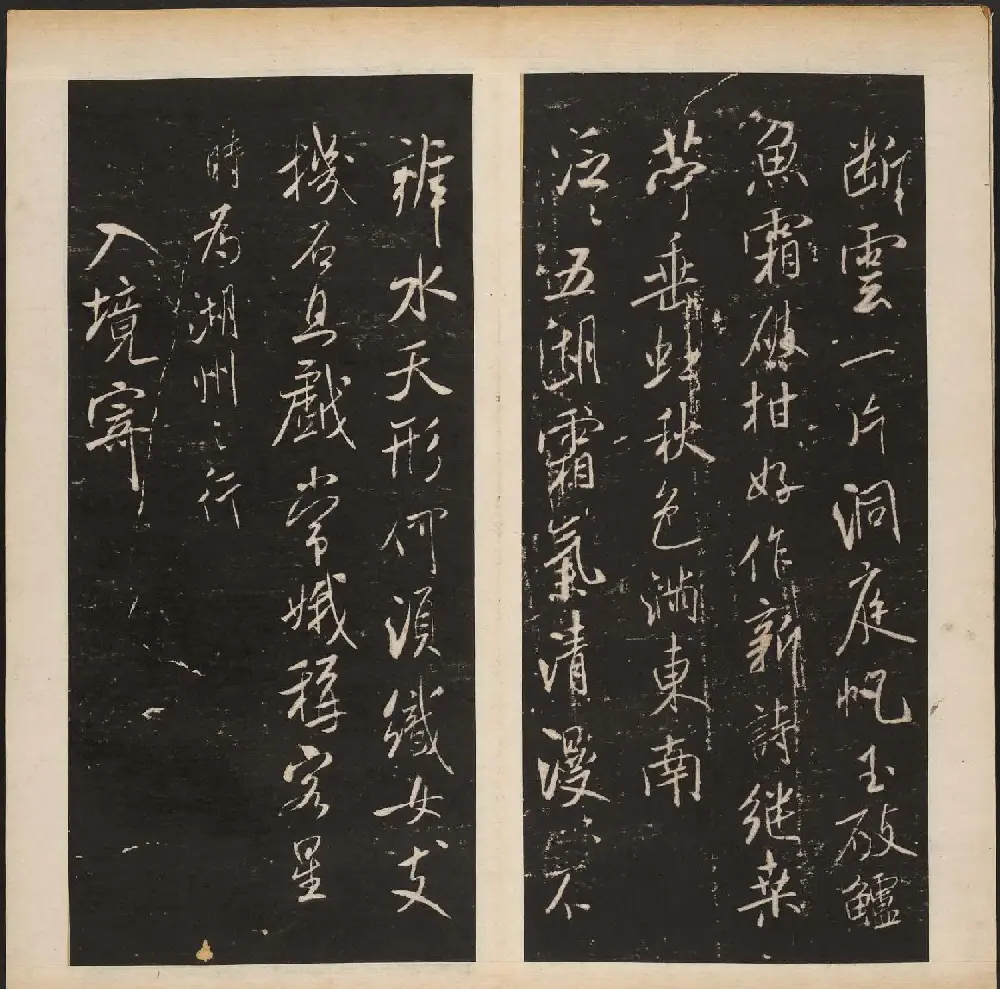 断雲一片洞庭帆玉破鱸
魚霜破柑好作新詩継桑
苧垂虹秋色満東南
泛〻五湖霜氣清漫〻不
辨水天形何須織女支
機石且戲常娥稱客星
時為湖州〻行
入境寄